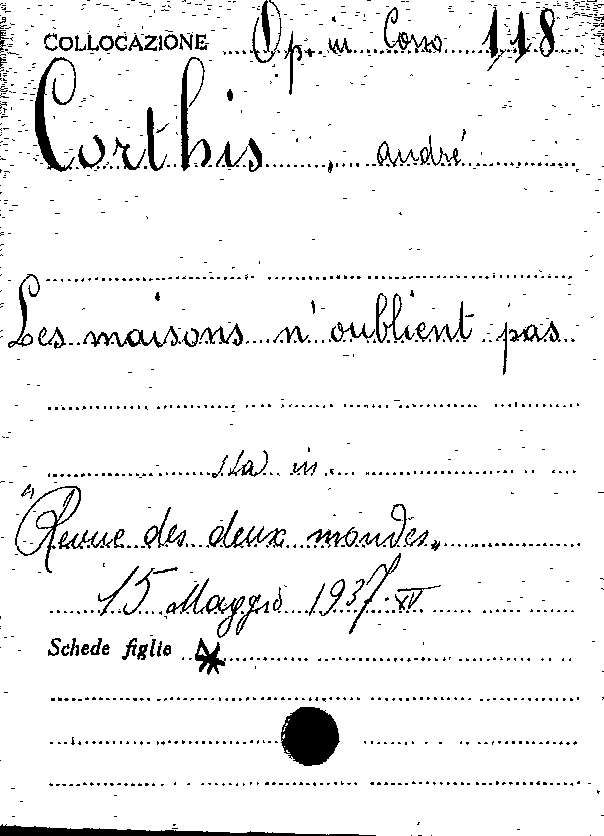 COLLOCAZIONE Op. in Corso 118
Corthis, André
Les maisons n'oublient pas
sta in
"Revue des deux mondes„
15 Maggio 1937. XV
Schede figlie